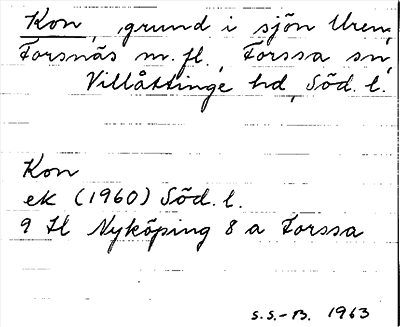 Kon, grund i sjön Uren,
Forsnäs m. fl., Forssa sn,
Villåttinge hd, Söd. l.
Kon
ek (1960) Söd. l.
9 H Nyköping 8 a Forssa
S.S.-B. 1963